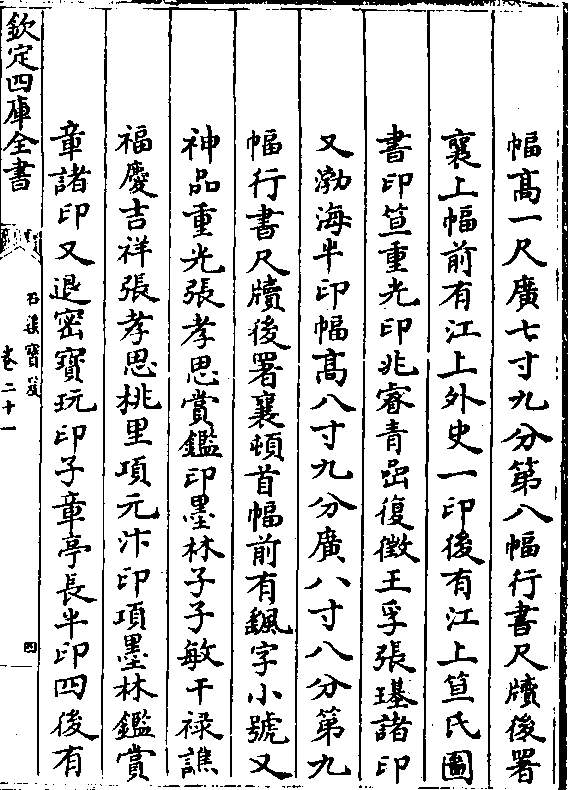 幅髙一尺廣七寸九分第八幅行書尺牘後署
襄上幅前有江上外史一印後有江上笪氏圖
書印笪重光印兆睿青嵒復徴王孚張璂諸印
又渤海半印幅髙八寸九分廣八寸八分第九
幅行書尺牘後署襄頓首幅前有颿字小號又
神品重光張孝思賞鑑印墨林子子敏干禄譙
福慶吉祥張孝思桃里項元汴印項墨林鑑賞
章諸印又退密寳玩印子章亭長半印四後有
欽定四庫全書
石渠寳笈
卷二十一
四